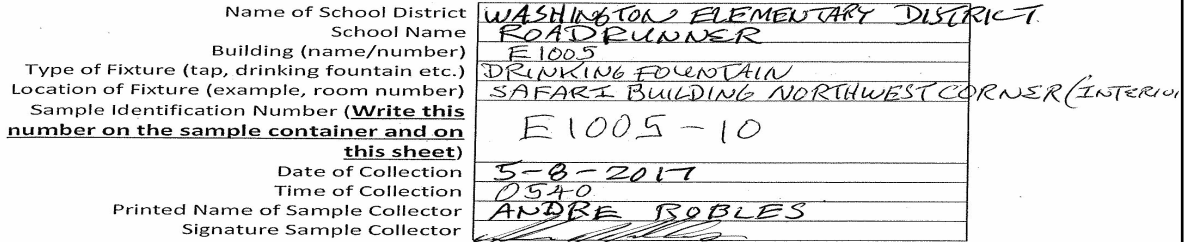 Name of School District WASHINGTON ELEMENTARY DISTRICT
School Name ROADRUNNER
Building (name/number) E1005
Type of Fixture (tap, drinking fountain etc.) DRINKING FOUNTAIN
Location of Fixture (example, room number) SAFARI BUILDING NORTHWEST CORNER (INTERIO
Sample Identification Number (Write this
number on the sample container and on E1005-10
this sheet)
Date of Collection 5-8-2017
Time of Collection 0540
Printed Name of Sample Collector ANDRE ROBLES
Signature Sample Collector